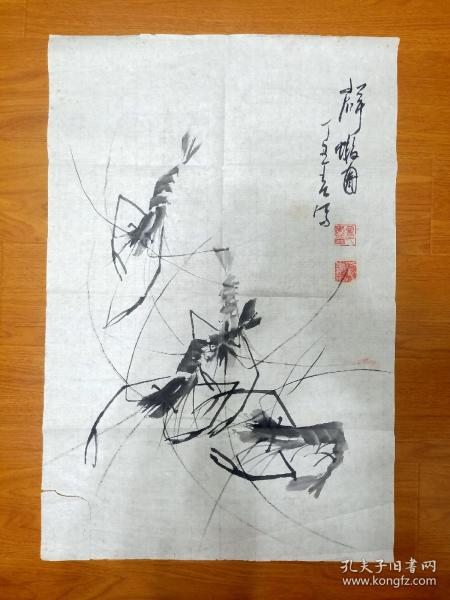 群虾图
丁丑春写
孔夫子旧书网
www.kongfz.com